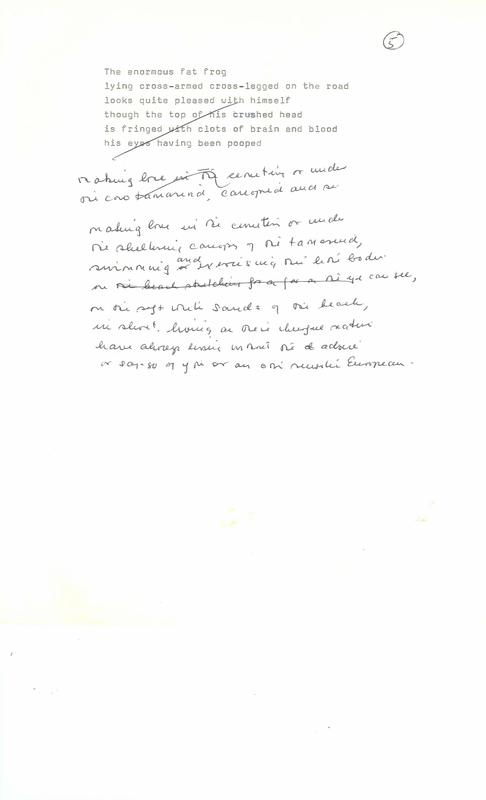 5
The enormous fat frog
lying cross-armed cross-legged on the road
looks quite pleased with himself
though the top of his crushed head
is fringed with clots of brain and blood
his eyes having been pooped
making love in the cemetery or under
the tamarind, canopied and
making love in the cemetery or under
the sheltering canopy of the tamarind,
swimming and exercising their lithe bodies
on the beach stretching for as far as the eye can see,
on the soft white sands of the beach,
in short: living as their cheerful natures
have always without the advice
or say-so of you or any other neurotic European.